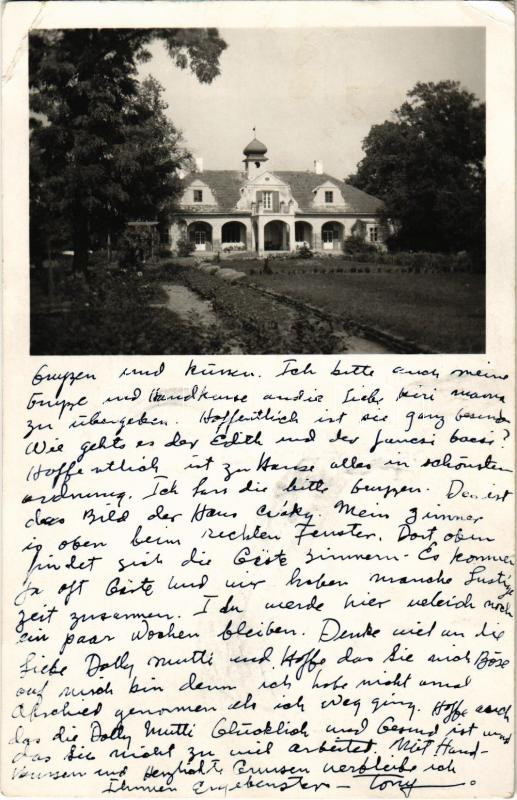 Gruszen und küssen. Ich bitte auch meine
Grüsze und Handküsse an die Liebe kiri mama
zu übergeben. Hoffentlich ist sie ganz gesund.
Wie gehts es der Edith und der Jancsi bacsi?
Hoffentlich ist zu Hause alles in schönsten
ordnung. Ich lass die bitte Gruszen. Das ist
das Bild der Haus Csáky. Mein Zimmer
is oben beim rechten Fenster. Dort oben
findet sich die Gäste zimmern - Es kommen
ja oft Gäste und wir haben manche Lustige
zeit zusammen. Ich werde hier noch
ein paar Wochen bleiben. Denke viel an die
Liebe Dolly Mutti und Hoffe das Sie nich Böse
auf mich bin denn ich habe nicht amal
Abschied genommen als ich weg ging. Hoffe auch
das die Dolly Mutti Glücklich und Gesund ist und
das Sie nicht zu viel arbeitet. Mit Hand-
küssen und Herzlichte Grüssen verbleibe ich
Ihnnen Ergebenster - Tony